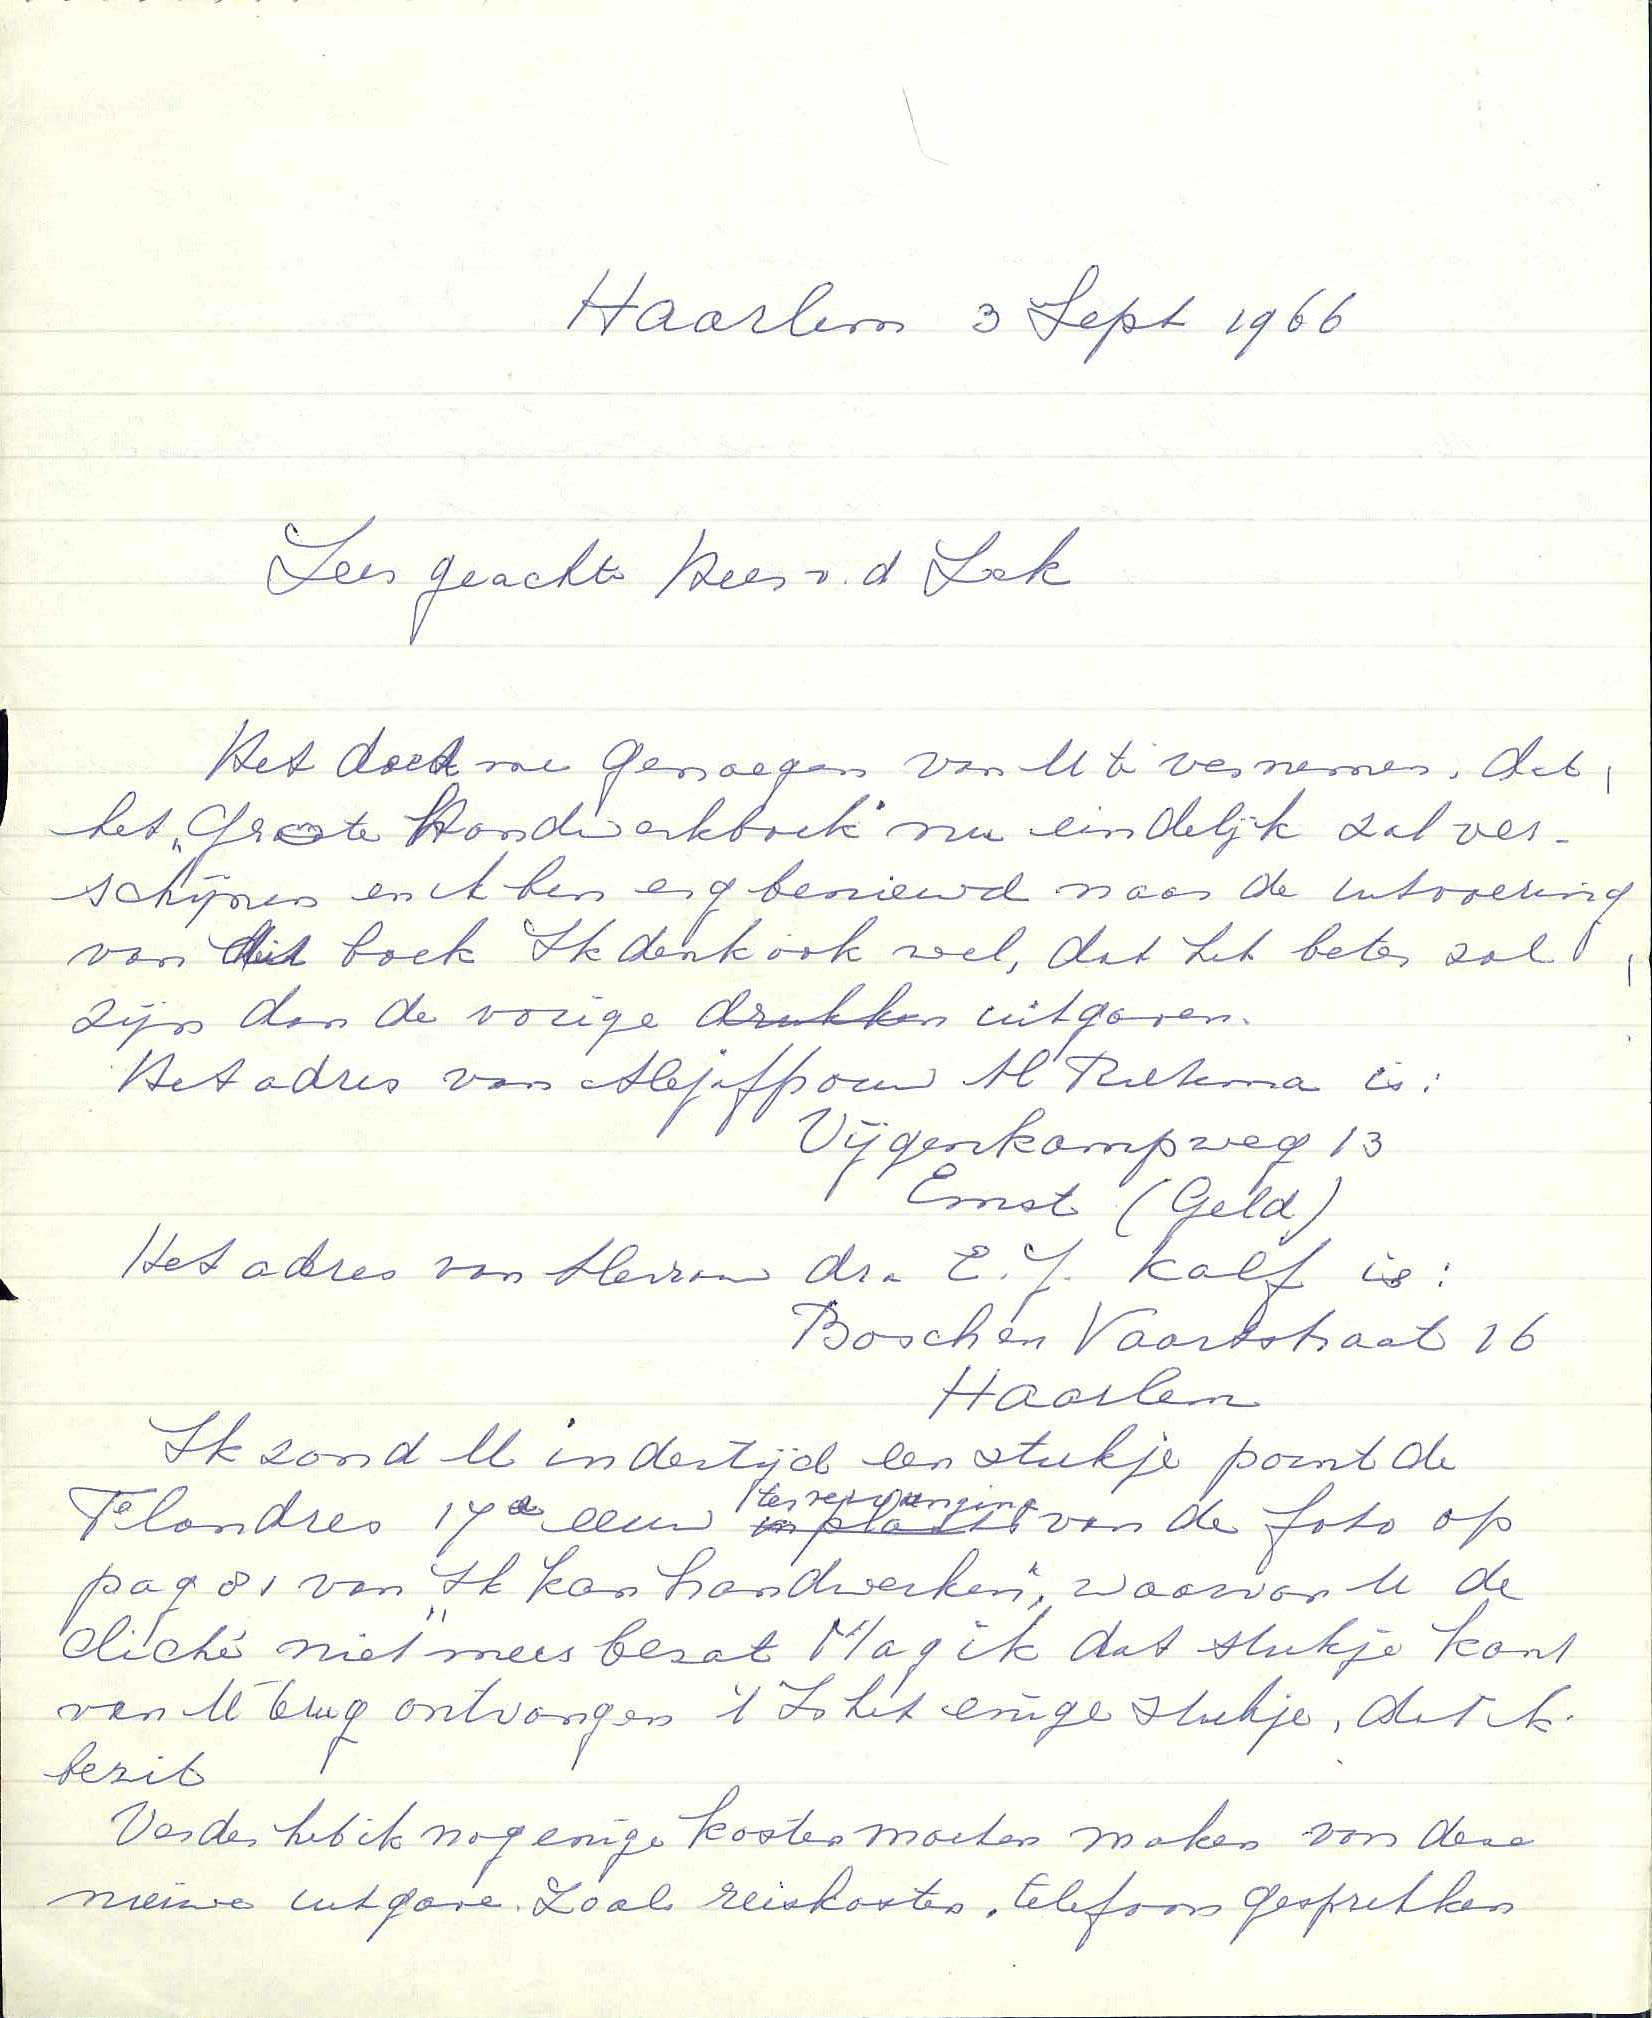 Haarlem 3 Sept 1966
Zeer geachte Heer v. d Lek
Het doet me genoegen van U te vernemen, dat
het „Grote Handwerkboek" nu eindelijk zal ver-
schijnen en ik ben erg benieuwd naar de uitvoering
van dit boek Ik denk ook wel, dat het beter zal
zijn dan de vorige drukken uitgaven.
Het adres van Mejuffrouw M
is:
Vijgenkampweg 13
Emst (Geld)
Het adres van Mevrouw dra E. J. Kalf is:
Boschen Vaartstraat 16
Haarlem
Ik zond U indertijd een stukje point de
Flandres 17de eeuw inplaats ter vervanging van de foto op
pag 81 van „Ik kan handwerken", waarvan U de
cliché niet meer bezat Mag ik dat stukje kant
van U terug ontvangen 't Is het enige stukje, dat ik
bezit
Verder heb ik nog enige kosten moeten maken van deze
nieuwe uitgave. Zoals reiskosten, telefoon gesprekken